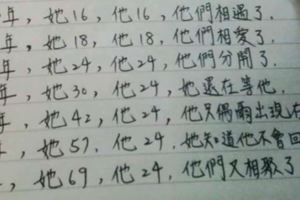 年，她16，他16，他們相遇了．
年，她18，他18，他們相愛了．
年，她24，他24，他們分開了．
年，她30，他24，她還在等他．
年，她42，他24，他只偶爾出現在
，她57．他24．她知道他不會回
，她69，他24，他們又相聚了